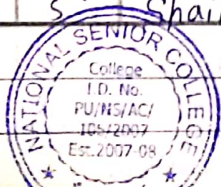 S Shai
NATIONAL SENIOR COLLEGE
College
I.D. No.
PU/NS/AC/
105/2007
Est.2007-08